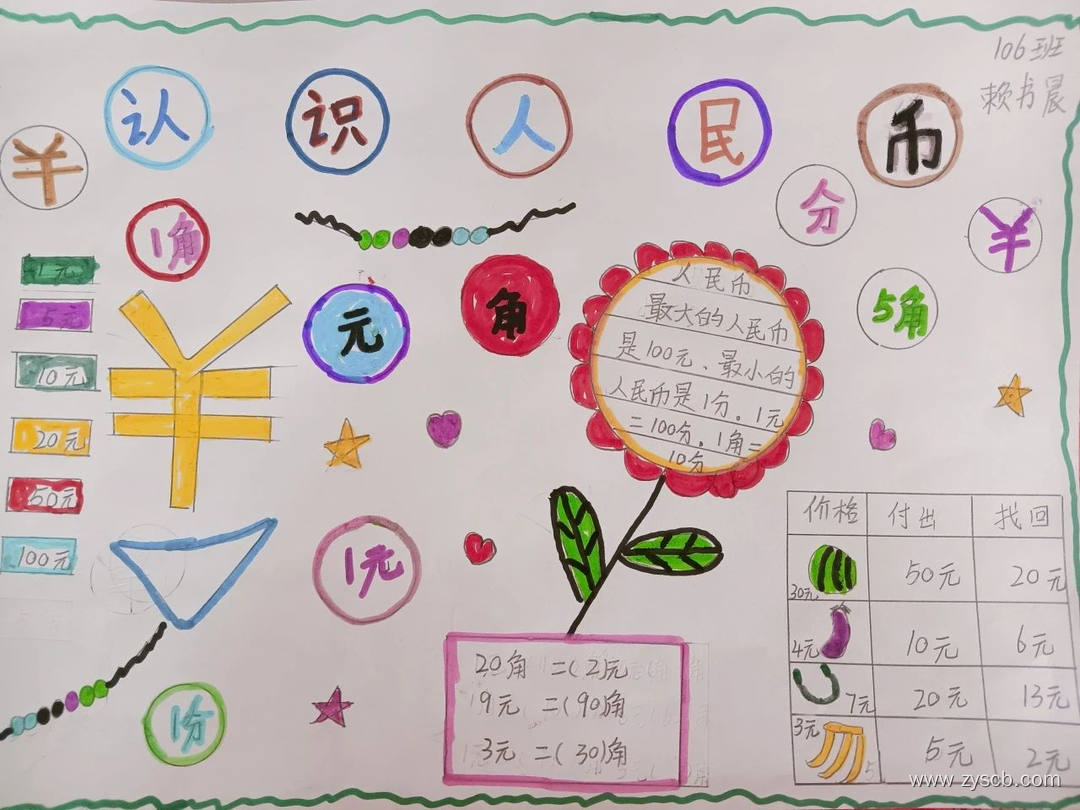 106班
赖书晨
认识人民币
¥
分
¥
1角
5角
元
角
1元
5元
10元
20元
50元
100元
¥
人民币
最大的人民币
是100元、最小的
人民币是1分。1元
=100分，1角=
10分
1元
1分
20角 =(2)元
9元 =(90)角
3元 =(30)角
价格 付出 找回
30元 50元 20元
4元 10元 6元
7元 20元 13元
3元 5元 2元
www.zyscb.com